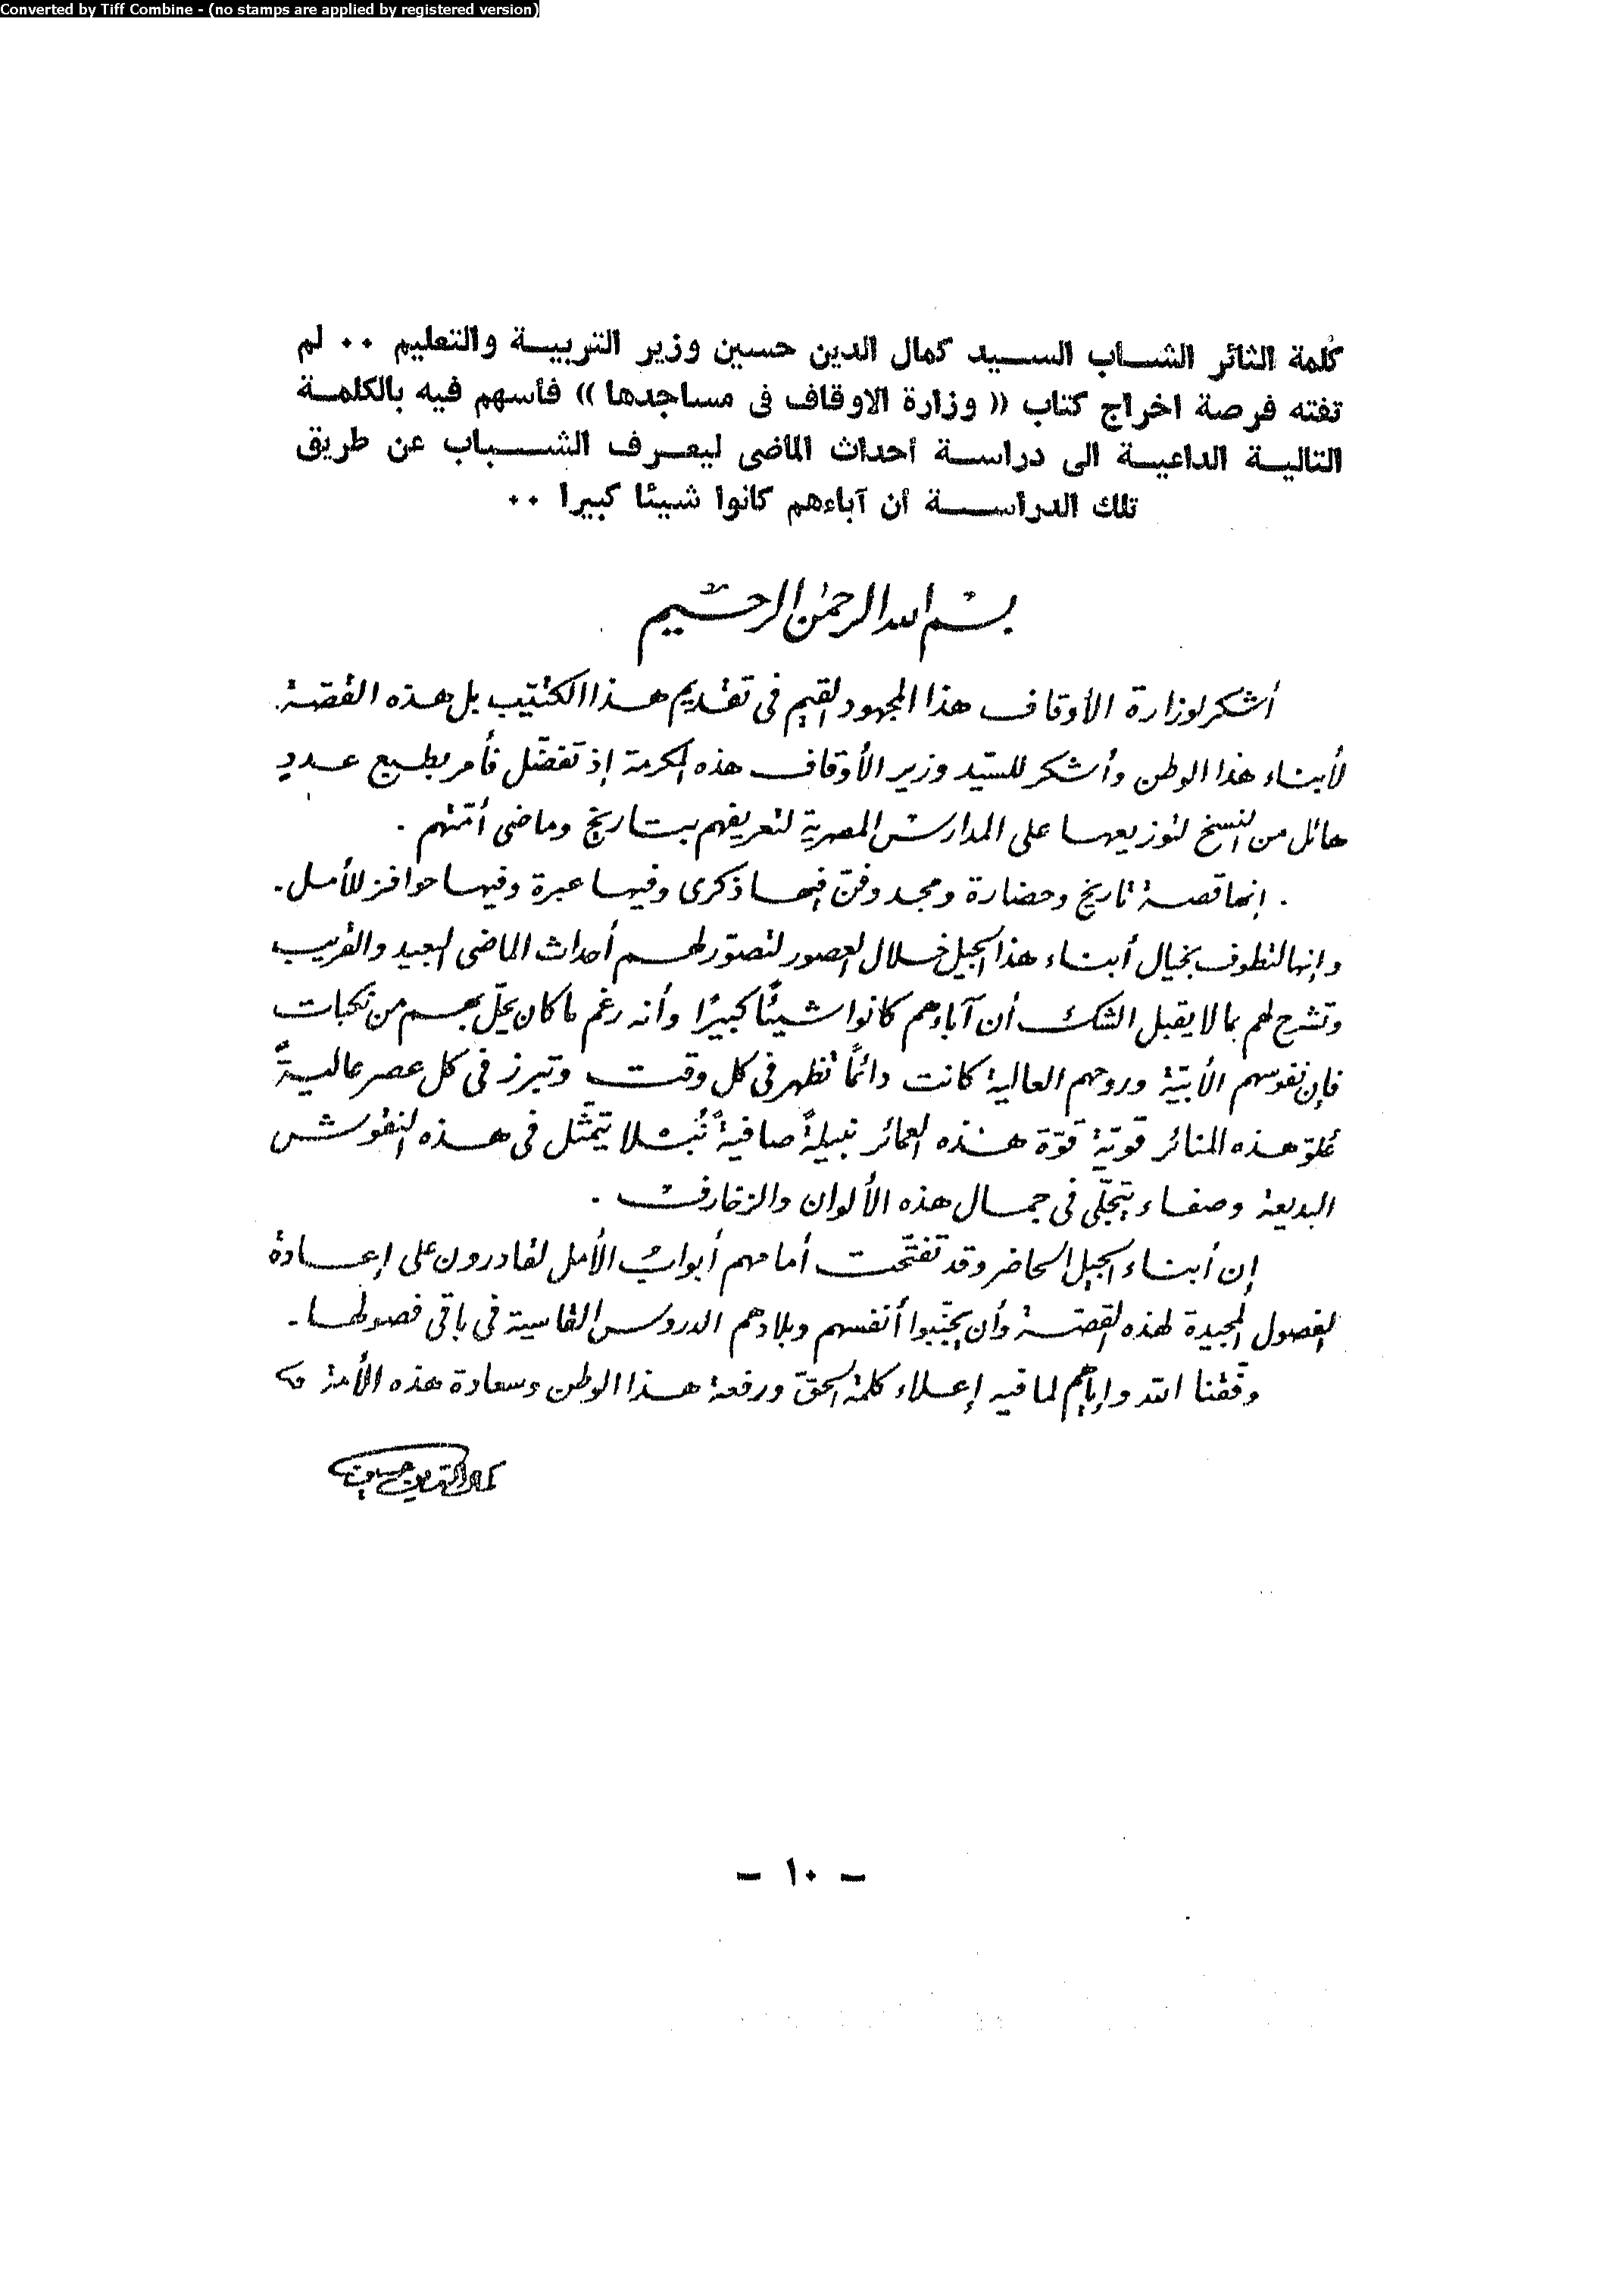 Converted by Tiff Combine - (no stamps are applied by registered version)
كلمة الثائر الشاب السيد كمال الدين حسين وزير التربية والتعليم ٠٠ لم
تفته فرصة اخراج كتاب « وزارة الاوقاف فى مساجدها » فأسهم فيه بالكلمة
التالية الداعية الى دراسة أحداث الماضى ليعرف الشباب عن طريق
تلك الدراسة أن آباءهم كانوا شيئا كبيرا ٠٠
بسم الله الرحمٰن الرحيم
أشكر لوزارة الأوقاف هذا المجهود القيم فى تقديم هذا الكتيب بل هذه القصة.
لأبناء هذا الوطن وأشكر للسيّد وزير الأوقاف هذه المكرمة إذ تفضّل فأمر بطبع عددٍ
هائل من النسخ لتوزيعها على المدارس المصرية لتعريفهم بتاريخ وماضى أمّتهم .
. إنها قصة تاريخ وحضارة ومجد وفنّ فيها ذكرى وفيها عبرة وفيها حوافز للأمل .
وإنها لتطوف بخيال أبناء هذا الجيل خلال العصور لتصوّر لهم أحداث الماضى البعيد والقريب
وتشرح لهم بما لا يقبل الشك أن آباءهم كانوا شيئًا كبيرًا وأنه رغم ما كان يحلّ بهم من نكبات
فإن نفوسهم الأبيّة وروحهم العالية كانت دائمًا تظهر فى كل وقت وتبرز فى كل عصر عاليةً
علوّ هذه المنائر قويّة قوّة هذه العمائر نبيلةً صافيةً نُبلا يتمثّل فى هذه النقوش
البديعة وصفاء يتجلّى فى جمال هذه الألوان والزخارف .
إن أبناء الجيل الحاضر وقد تفتّحت أمامهم أبواب الأمل لقادرون على إعادة
الفصول المجيدة لهذه القصة وأن يجنّبوا أنفسهم وبلادهم الدروس القاسية فى باقى فصولها .
وفّقنا الله وإياهم لما فيه إعلاء كلمة الحقّ ورفعة هذا الوطن وسعادة هذه الأمة
كمال الدين حسين
– ١٠ –